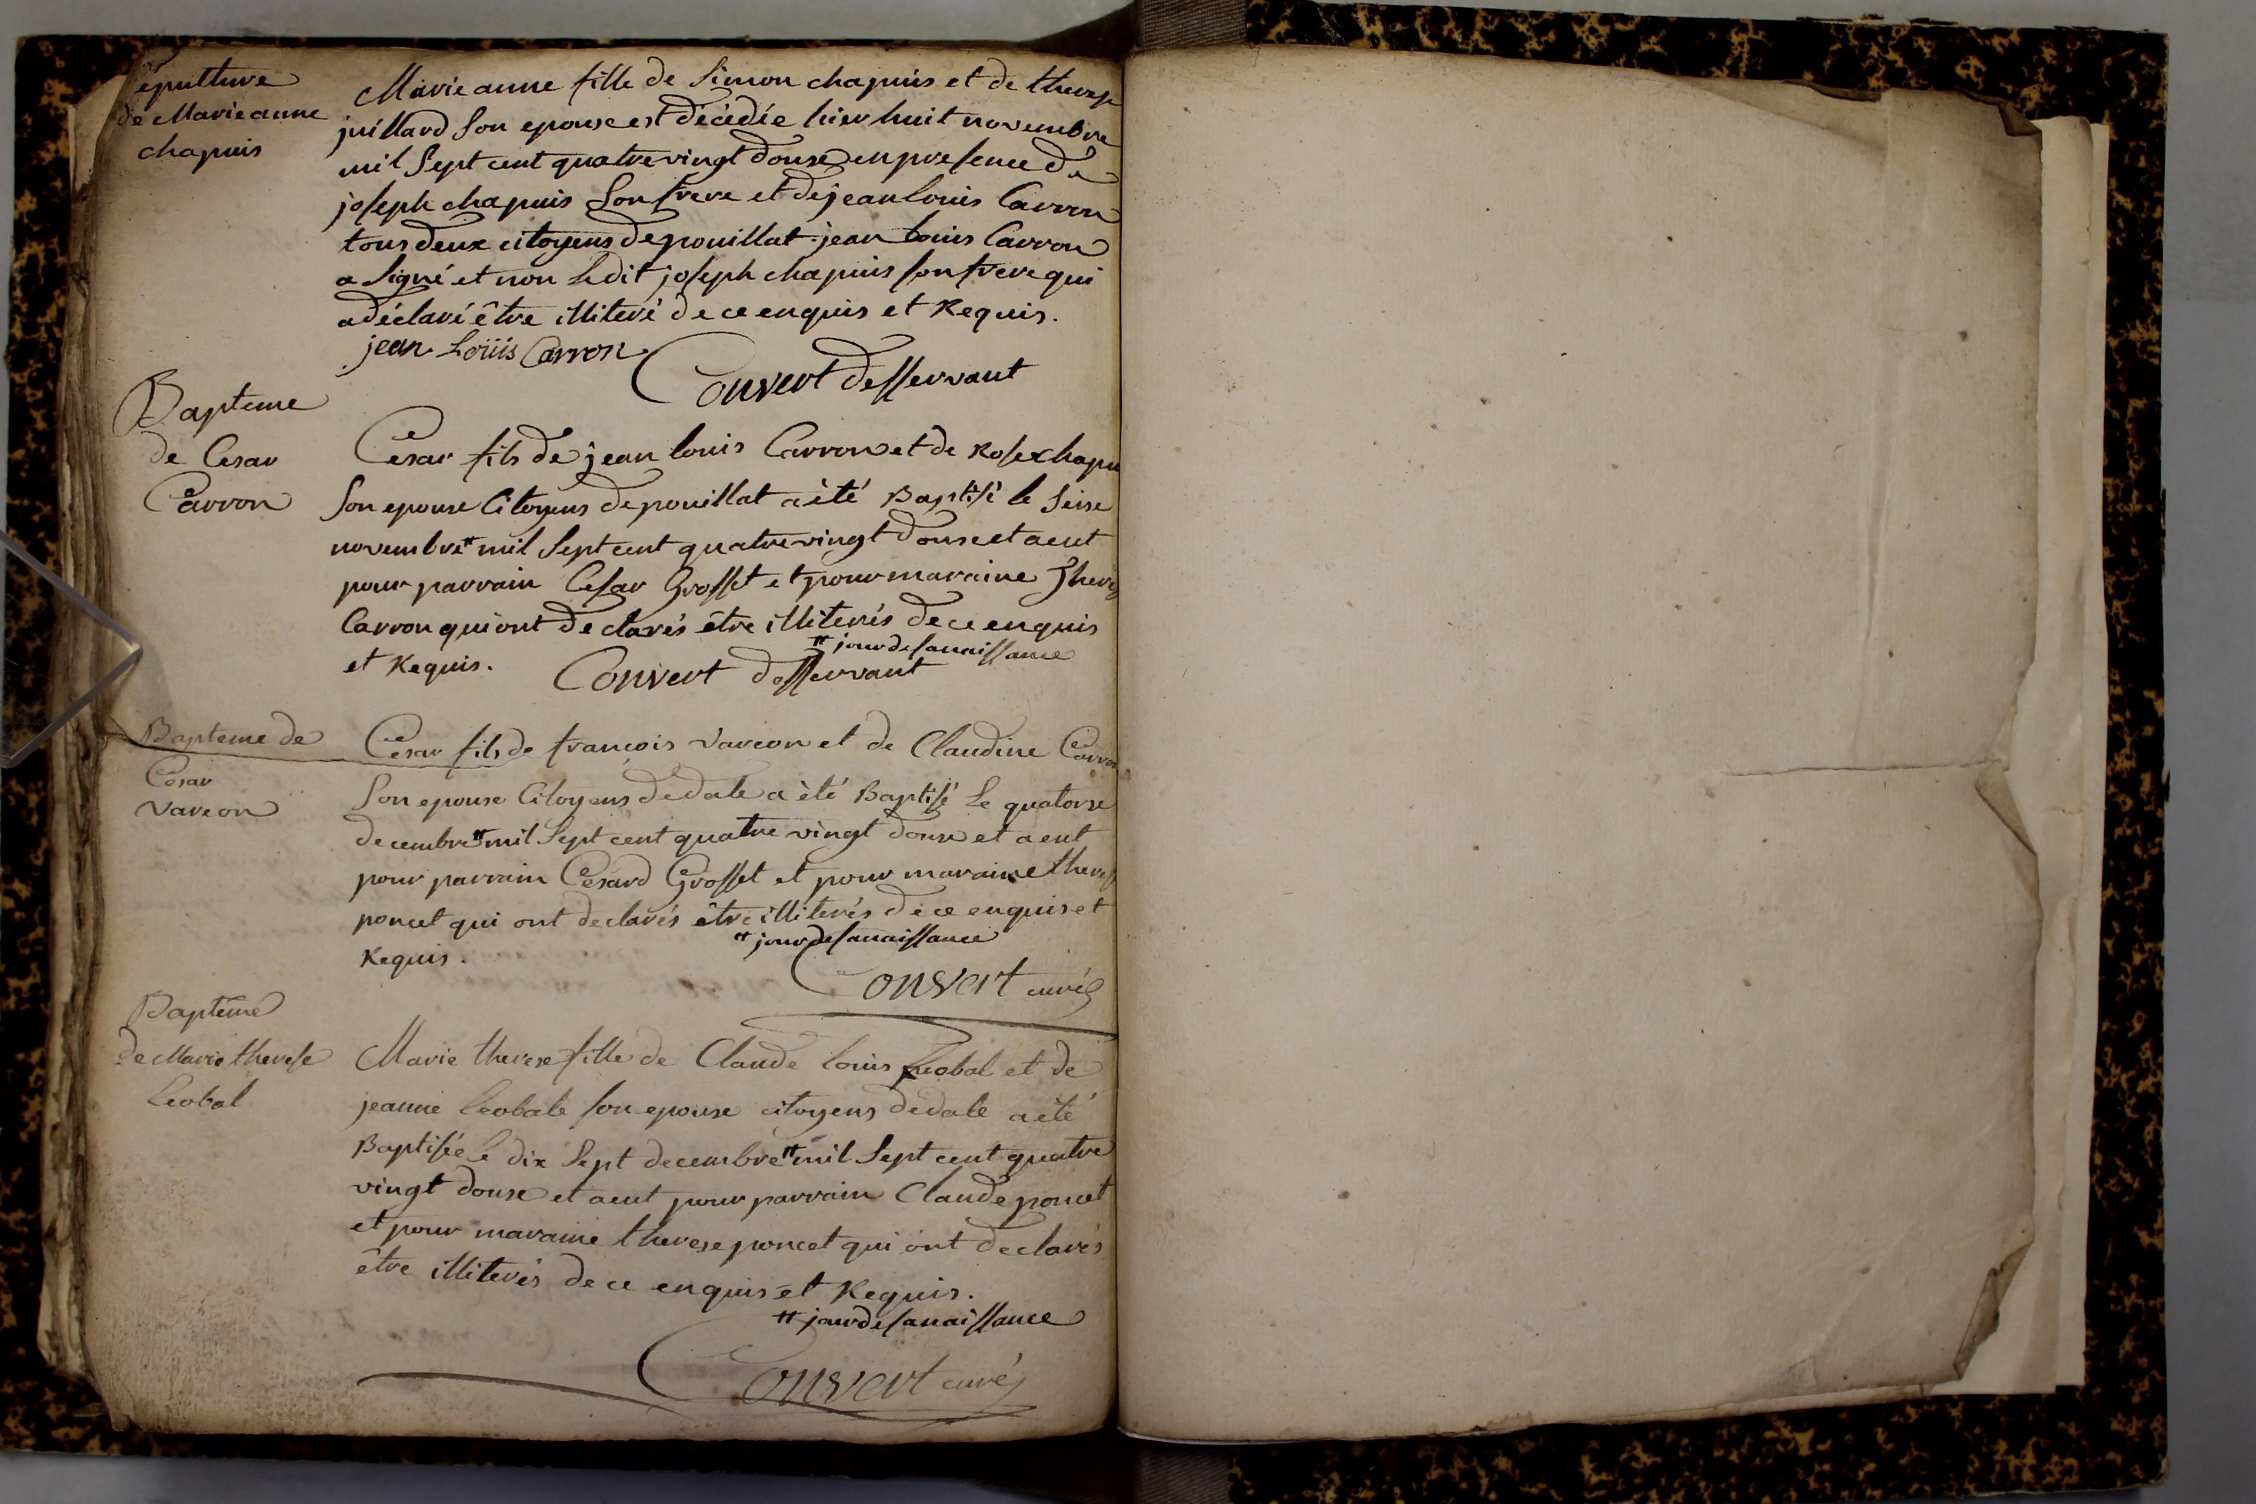 epulture
de Marie anne
chapuis
Marie anne fille de Simon chapuis et de therese
juillard Son epouse est décédée hier huit novembre
mil Sept cent quatre vingt douse en presence de
joseph chapuis Son frere et de jean louis Carron
tous deux citoyens de pouillat. jean louis Carron
a Signé et non Ledit joseph chapuis son frere qui
a déclaré être illiteré de ce enquis et Requis.
jean Loüis Carron
Convert desservant
Bapteme
de Cesar
Carron
Cesar fils de jean louis Carron et de Rose chapu
Son epouse Citoyens de pouillat a été Baptisé le Seise
novembre # mil Sept cent quatre vingt douse et a eut
pour parrain Cesar Grosset et pour maraine Therese
Carron qui ont declarés être illiterés de ce enquis
et Requis.
# jour de sa naissance
Convert desservant
Bapteme de
Cesar
Vareon
Cesar fils de françois Vareon et de Claudine Carron
Son epouse Citoyens de dale a été Baptisé Le quatorse
decembre # mil Sept cent quatre vingt douse et a eut
pour parrain Césard Grosset et pour maraine therese
poncet qui ont declarés être illiterés de ce enquis et
Requis.
# jour de sa naissance
Convert curé
Bapteme
de Marie therese
Leobal
Marie therese fille de Claude louis Leobal et de
jeanne Leobale son epouse citoyens de dale a été
Baptisée le dix Sept decembre # mil Sept cent quatre
vingt douse et a eut pour parrain Claude poncet
et pour maraine therese poncet qui ont declarés
être illiterés de ce enquis et Requis.
# jour de sa naissance
Convert curé